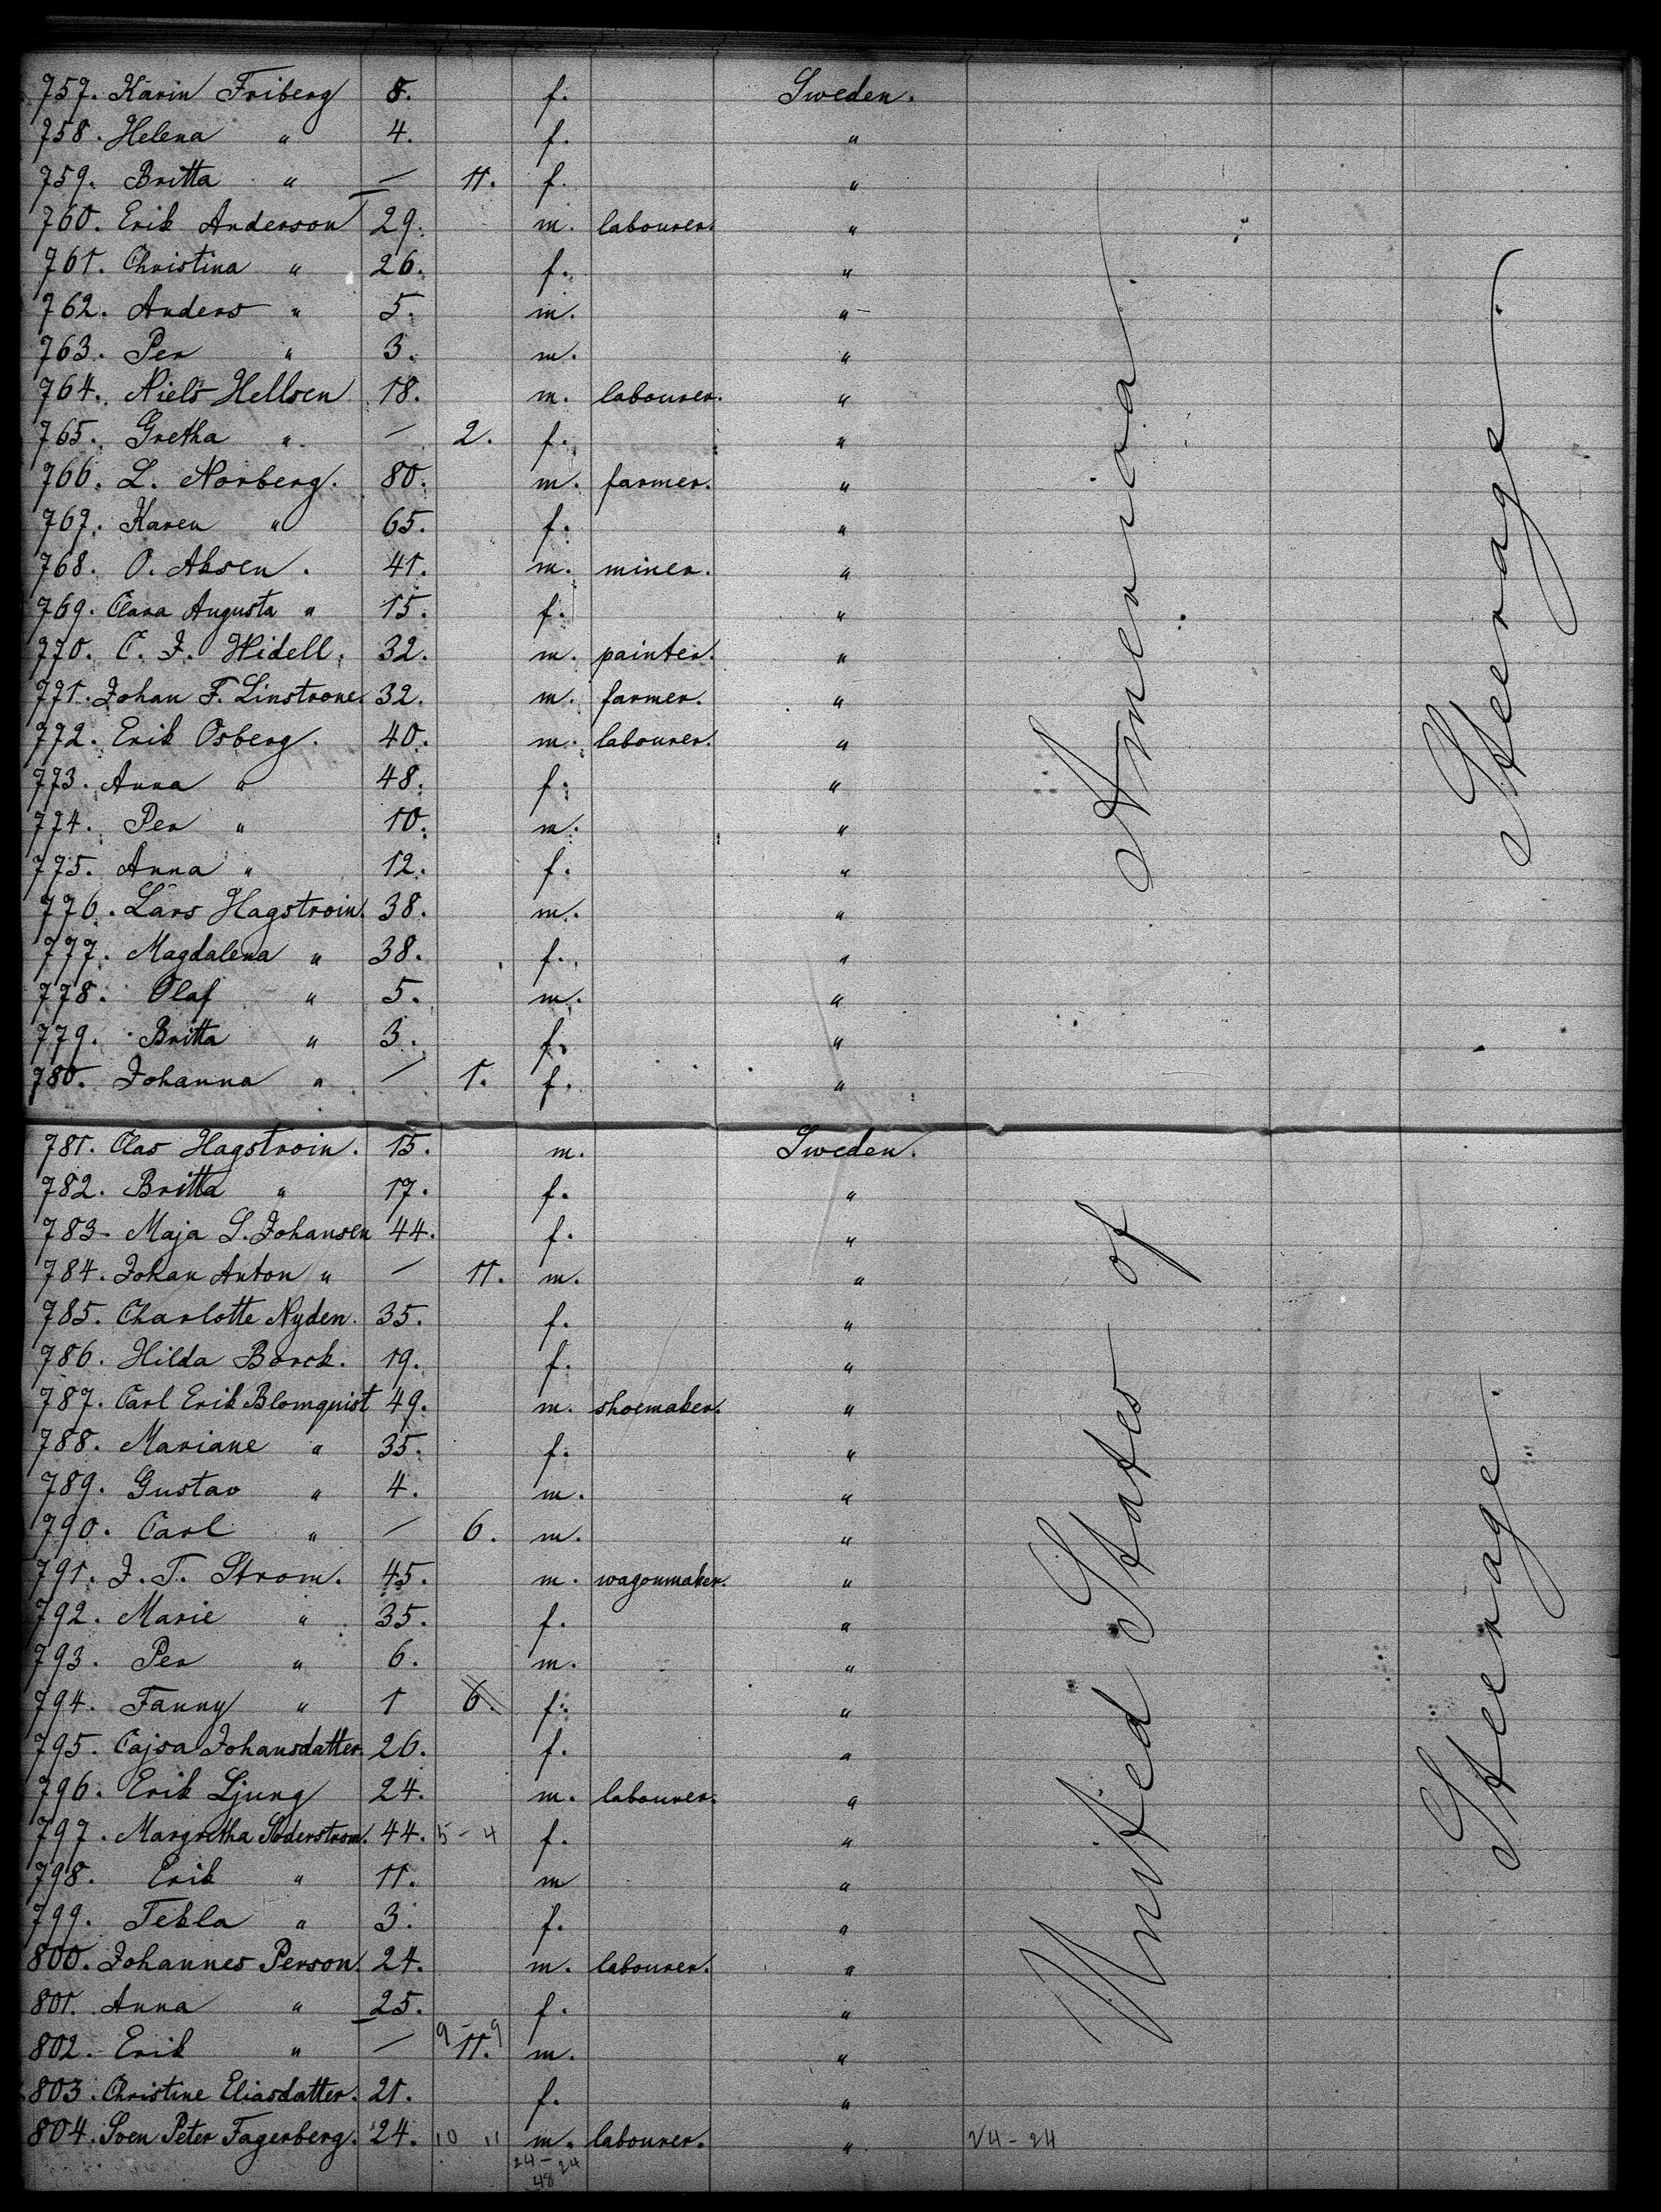 757. Karin Friberg 8. f. Sweden.
758. Helena " 4. f. "
759. Britta " — 11. f. "
760. Erik Anderson 29. m. labourer. "
761. Christina " 26. f. "
762. Anders " 5. m. "
763. Per " 3. m. "
764. Niels Hellsen 18. m. labourer. "
765. Gretha " — 2. f. "
766. L. Norberg. 80. m. farmer. "
767. Karen " 65. f. "
768. O. Aksen. 41. m. miner. "
769. Clara Augusta " 15. f. "
770. C. J. Widell. 32. m. painter. "
771. Johan F. Linstrone. 32. m. farmer. "
772. Erik Osberg. 40. m. labourer. "
773. Anna " 48. f. "
774. Per " 10. m. "
775. Anna " 12. f. "
776. Lars Hagstroin. 38. m. "
777. Magdalena " 38. f. "
778. Olaf " 5. m. "
779. Britta " 3. f. "
780. Johanna " — 1. f. "
781. Clas Hagstroin. 15. m. Sweden.
782. Britta " 17. f. "
783. Maja S. Johansen 44. f. "
784. Johan Anton " — 11. m. "
785. Charlotte Nyden. 35. f. "
786. Hilda Borck. 19. f. "
787. Carl Erik Blomquist 49. m. shoemaker. "
788. Mariane " 35. f. "
789. Gustav " 4. m. "
790. Carl " — 6. m. "
791. J. T. Strom. 45. m. wagonmaker. "
792. Marie " 35. f. "
793. Per " 6. m. "
794. Fanny " 1 6. f. "
795. Cajsa Johansdatter. 26. f. "
796. Erik Ljung 24. m. labourer. "
797. Margretha Soderstrom. 44. 5 - 4 f. "
798. Erik " 11. m "
799. Tekla " 3. f. "
800. Johannes Person. 24. m. labourer. "
801. Anna " 25. f. "
802. Erik " — 9 - 9 11. m. "
803. Christine Eliasdatter. 21. f. "
804. Sven Peter Fagerberg. 24. 10 11 m. labourer. " 24 - 24
24 - 24
48
United States of America.
Steerage.
Steerage.